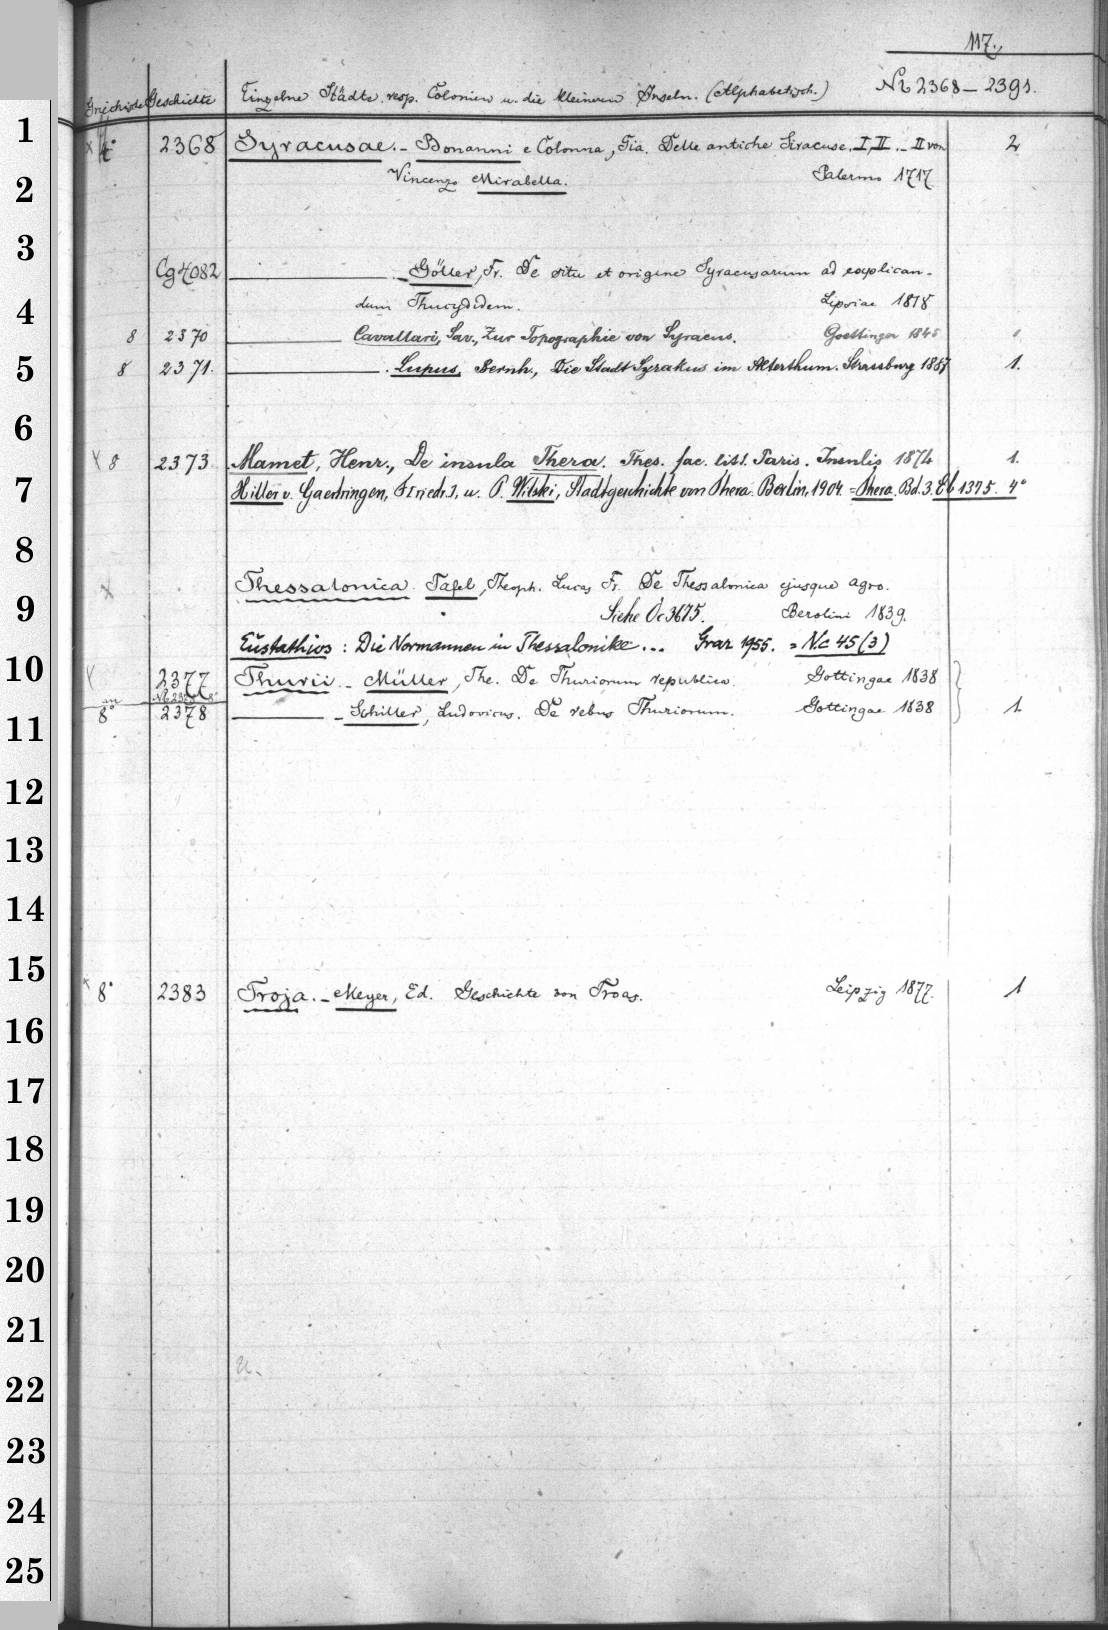 117.
Griechische Geschichte Einzelne Städte resp. Colonien u. die kleineren Inseln. (Alphabetisch.) Nc 2368–2391.
1
x 4° 2368 Syracusae. – Bonanni e Colonna, Gia. Delle antiche Siracuse. I, II. – II von 2
2
Vincenzo Mirabella. Palermo 1717
3
Cg 4082 Göller, Fr. De situ et origine Syracusarum ad explican-
4
dum Thucydidem. Lipsiae 1818
8 2370 Cavallari, Sav., Zur Topographie von Syracus. Goettingen 1845 1
5
8 2371. Lupus, Bernh., Die Stadt Syrakus im Alterthum. Strassburg 1887 1.
6
8 2373 Mamet, Henr., De insula Thera. Thes. fac. litt. Paris. Insulis 1874 1.
7
Hiller v. Gaertringen, F[riedr.], u. P. Wilski, Stadtgeschichte von Thera. Berlin, 1904. = Thera. Bd. 3. Eb 1375. 4°
8
x Thessalonica. Tafel, Theoph. Lucas Fr. De Thessalonica ejusque agro.
9
Siehe Oc 3675. Berolini 1839.
Eustathios : Die Normannen in Thessalonike... Graz 1955. = Nc 45 (3)
10
2377 Thurii. – Müller, The. De Thuriorum republica. Gottingae 1838
an
8° 2378 – Schiller, Ludovicus. De rebus Thuriorum. Gottingae 1838 1.
11
12
13
14
15
x 8° 2383 Troja. – Meyer, Ed. Geschichte von Troas. Leipzig 1877. 1
16
17
18
19
20
21
22
23
24
25